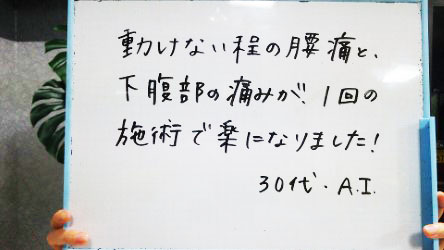 動けない程の腰痛と、
下腹部の痛みが、1回の
施術で楽になりました!
30代・A.I.